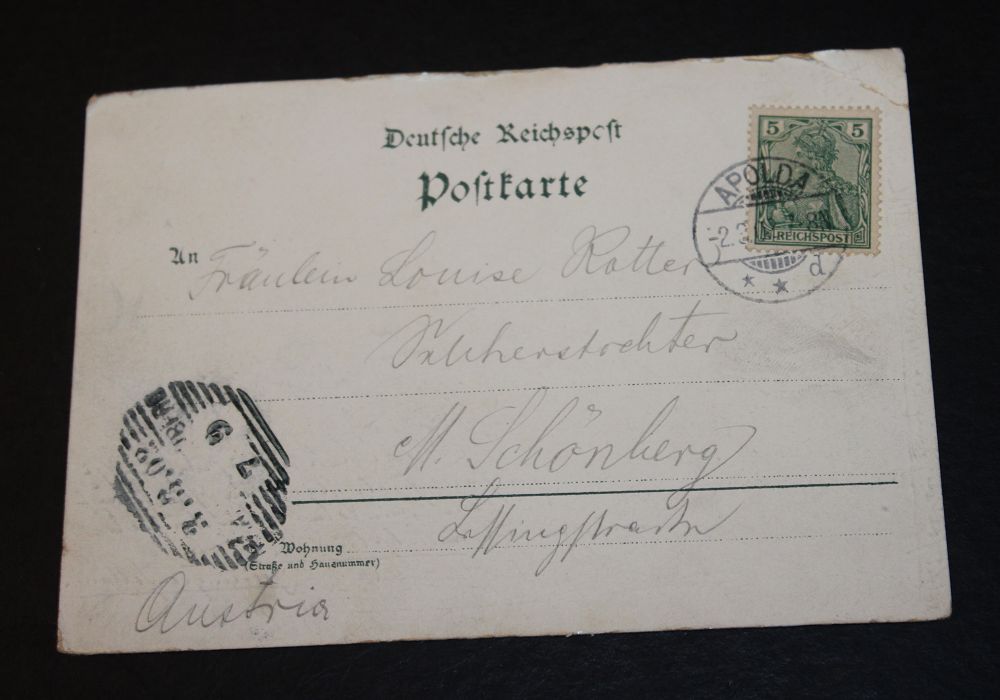 Deutsche Reichspost
Postkarte
5 5
REICHSPOST
APOLDA
-2.
8N
d
An Fräulein Louise Rotter
M. Schönberg
Wohnung
(Straße und Hausnummer)
9 7
8.02
Austria